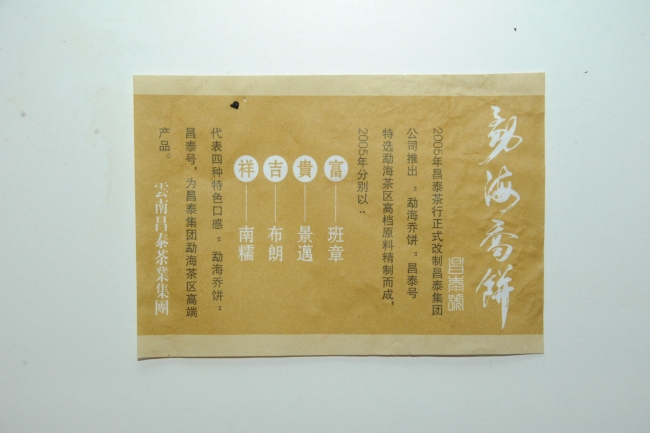 勐海喬餅
昌泰號
2005年昌泰茶行正式改制昌泰集团
公司推出 ：勐海乔饼：昌泰号
特选勐海茶区高档原料精制而成，
2005年分别以：
富——班章
貴——景邁
吉——布朗
祥——南糯
代表四种特色口感：勐海乔饼：
昌泰号，为昌泰集团勐海茶区高端
产品。
雲南昌泰茶業集團